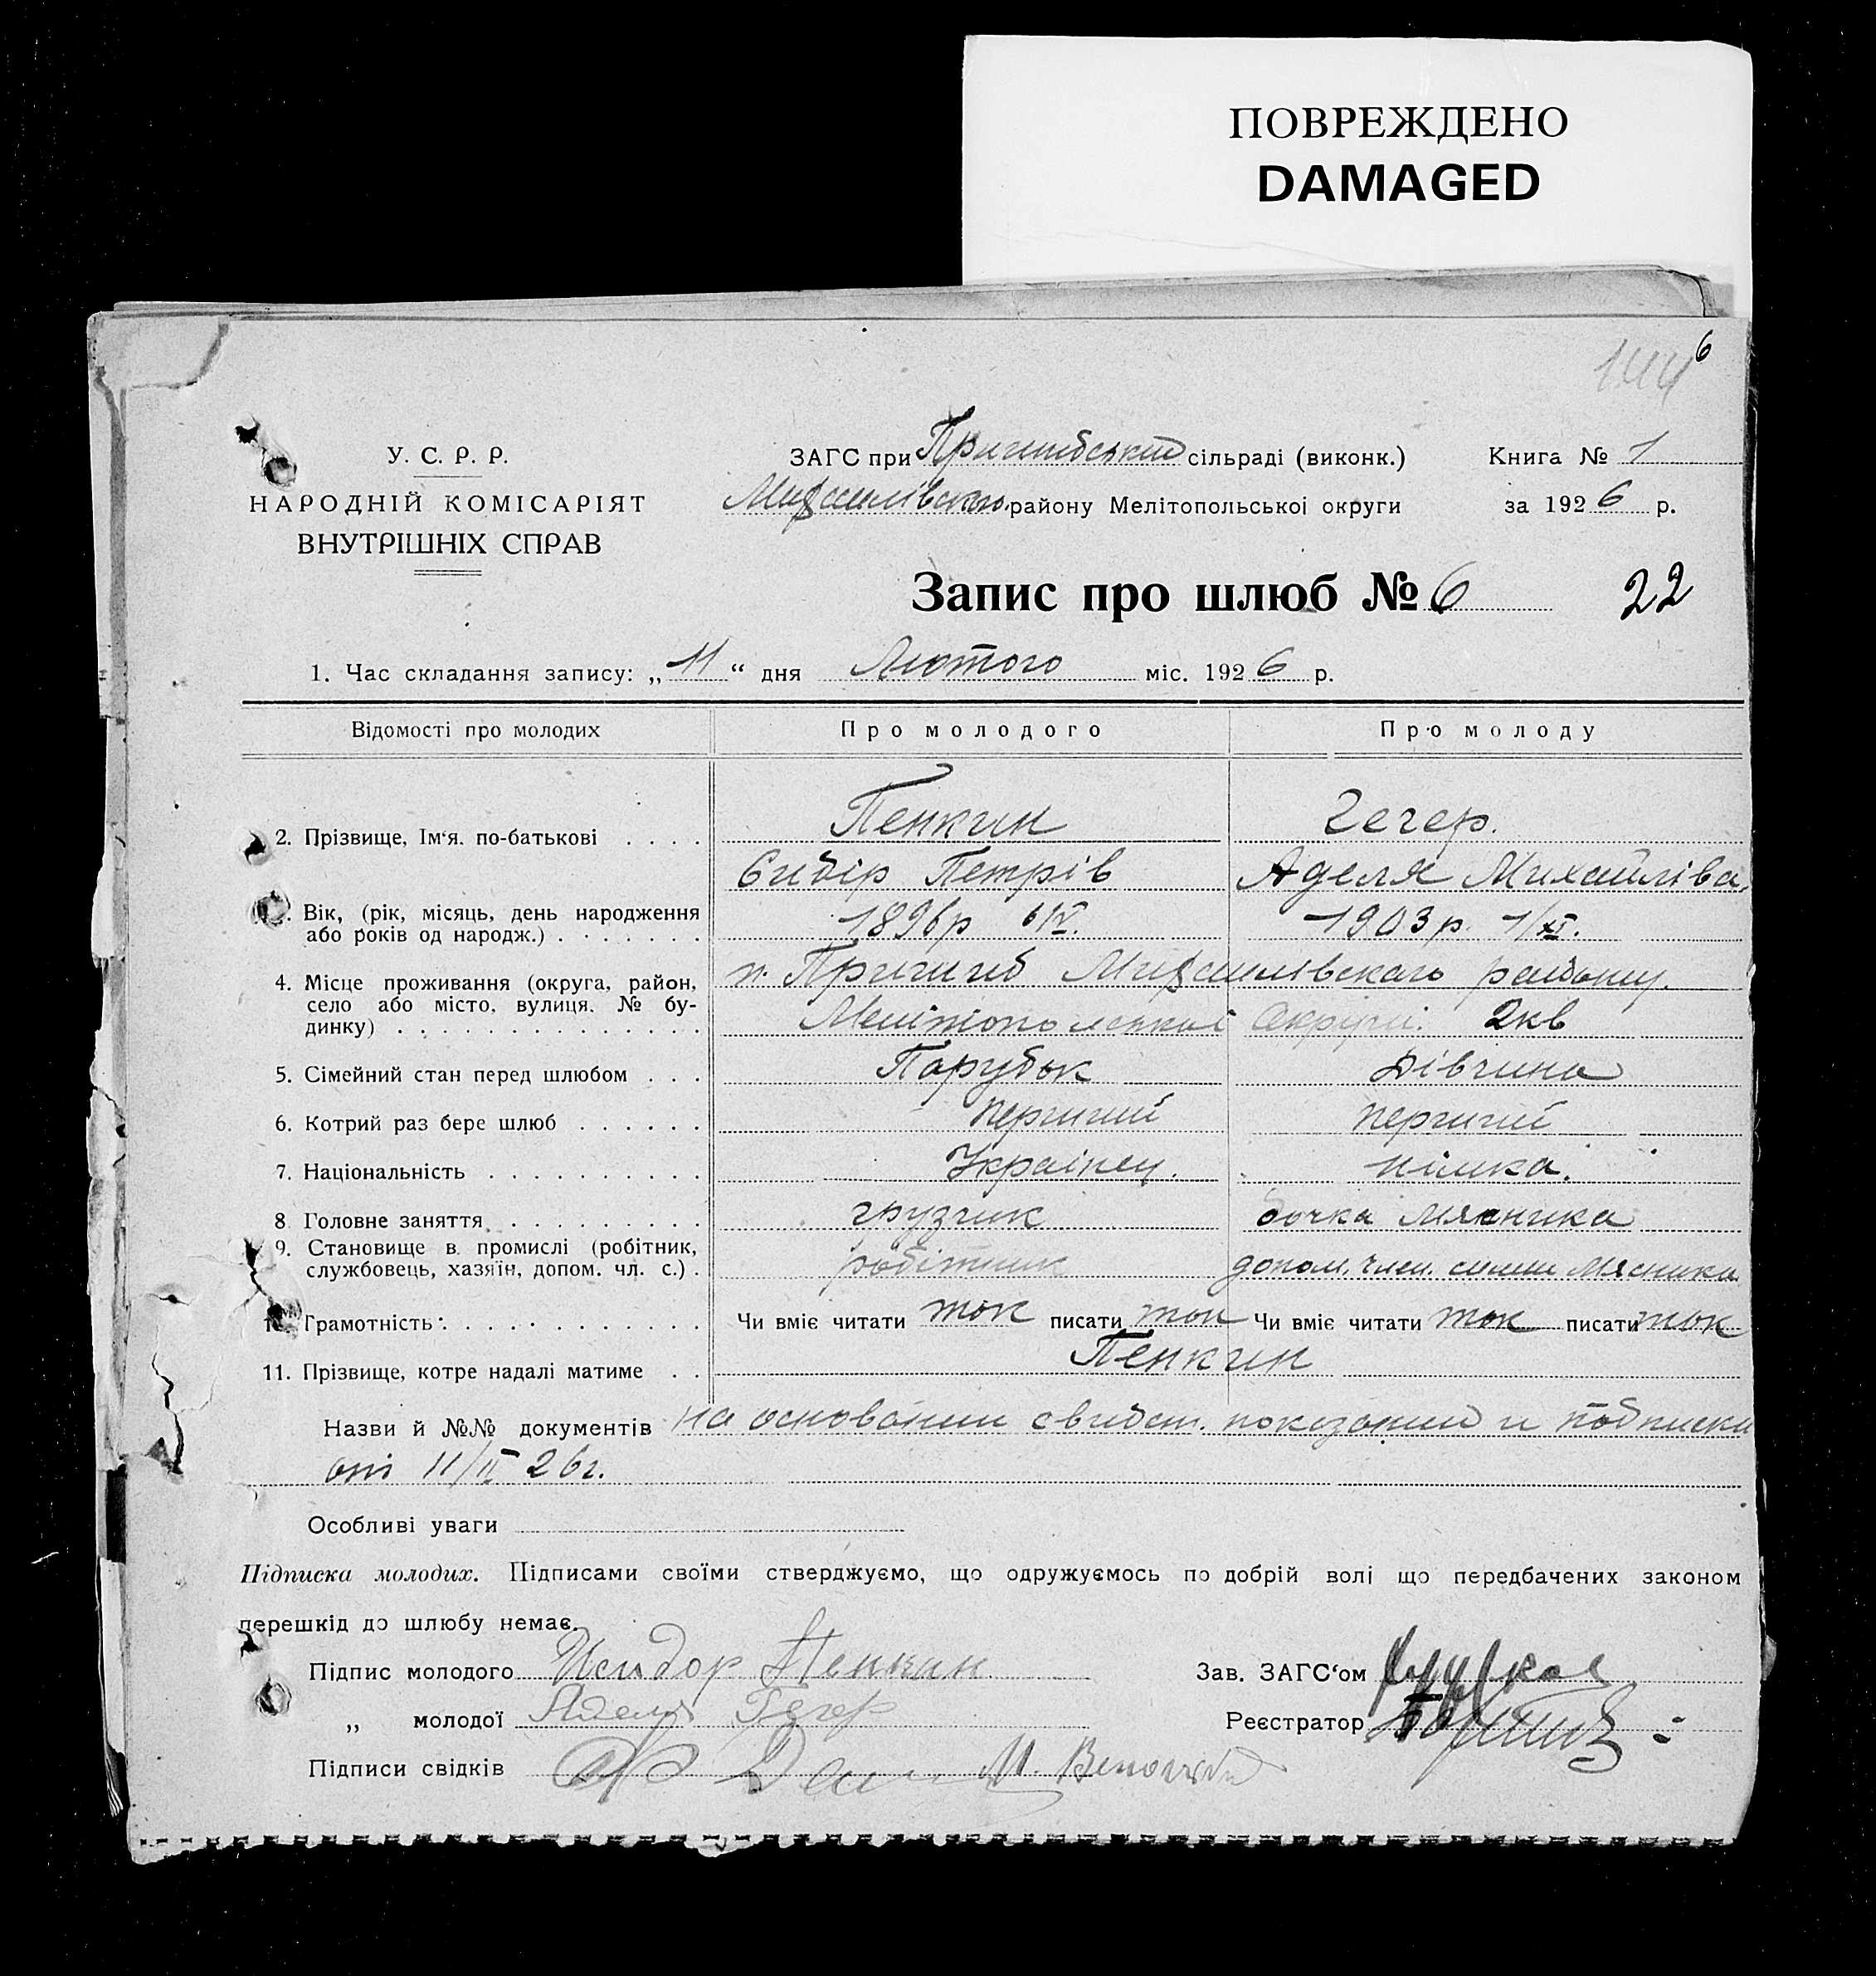 ПОВРЕЖДЕНО
DAMAGED
6
144
У. С. Р. Р.
НАРОДНІЙ КОМІСАРІЯТ
ВНУТРІШНІХ СПРАВ
ЗАГС при Пришибський сільраді (виконк.)
Михайлівского району Мелітопольської округи
Книга № 1
за 1926 р.
Запис про шлюб № 6
22
1. Час складання запису: „11“ дня Лютого міс. 1926 р.
Відомості про молодих Про молодого Про молоду
2. Прізвище, Ім‘я, по-батькові . . . . Пенкин Гегер.
Сидір Петрів Аделя Михайліва
Вік, (рік, місяць, день народження
або років од народж.) . . . . . . . 1896р 6/IV. 1903 р. 1/XI.
4. Місце проживання (округа, район,
село або місто, вулиця, № бу-
динку) . . . . . . . . . . . . . .
п. Пришиб Михайлівскаго району.
Мелітопольської Округи. 2кв
5. Сімейний стан перед шлюбом . . . Парубок Дівчина
6. Котрий раз бере шлюб . . . . . . перший перший
7. Національність . . . . . . . . . . Украінец. німка.
8 Головне заняття . . . . . . . . . грузчик дочка мясника
9. Становище в промислі (робітник,
службовець, хазяїн, допом. чл. с.) . робітник допом. член. симьи мясника
Грамотність . . . . . . . . . . . . Чи вміє читати так писати так Чи вміє читати так писати так
11. Прізвище, котре надалі матиме . . Пенкин
Назви й №№ документів на основании свидет. показаний и подписки
от 11/II 26г.
Особливі уваги
Підписка молодих. Підписами своїми стверджуємо, що одружуємось по добрій волі що передбачених законом
перешкід до шлюбу немає.
Підпис молодого Исидор Пенкин
Зав. ЗАГС‘ом
„ молодої Адель Гегер
Реєстратор
Підписи свідків